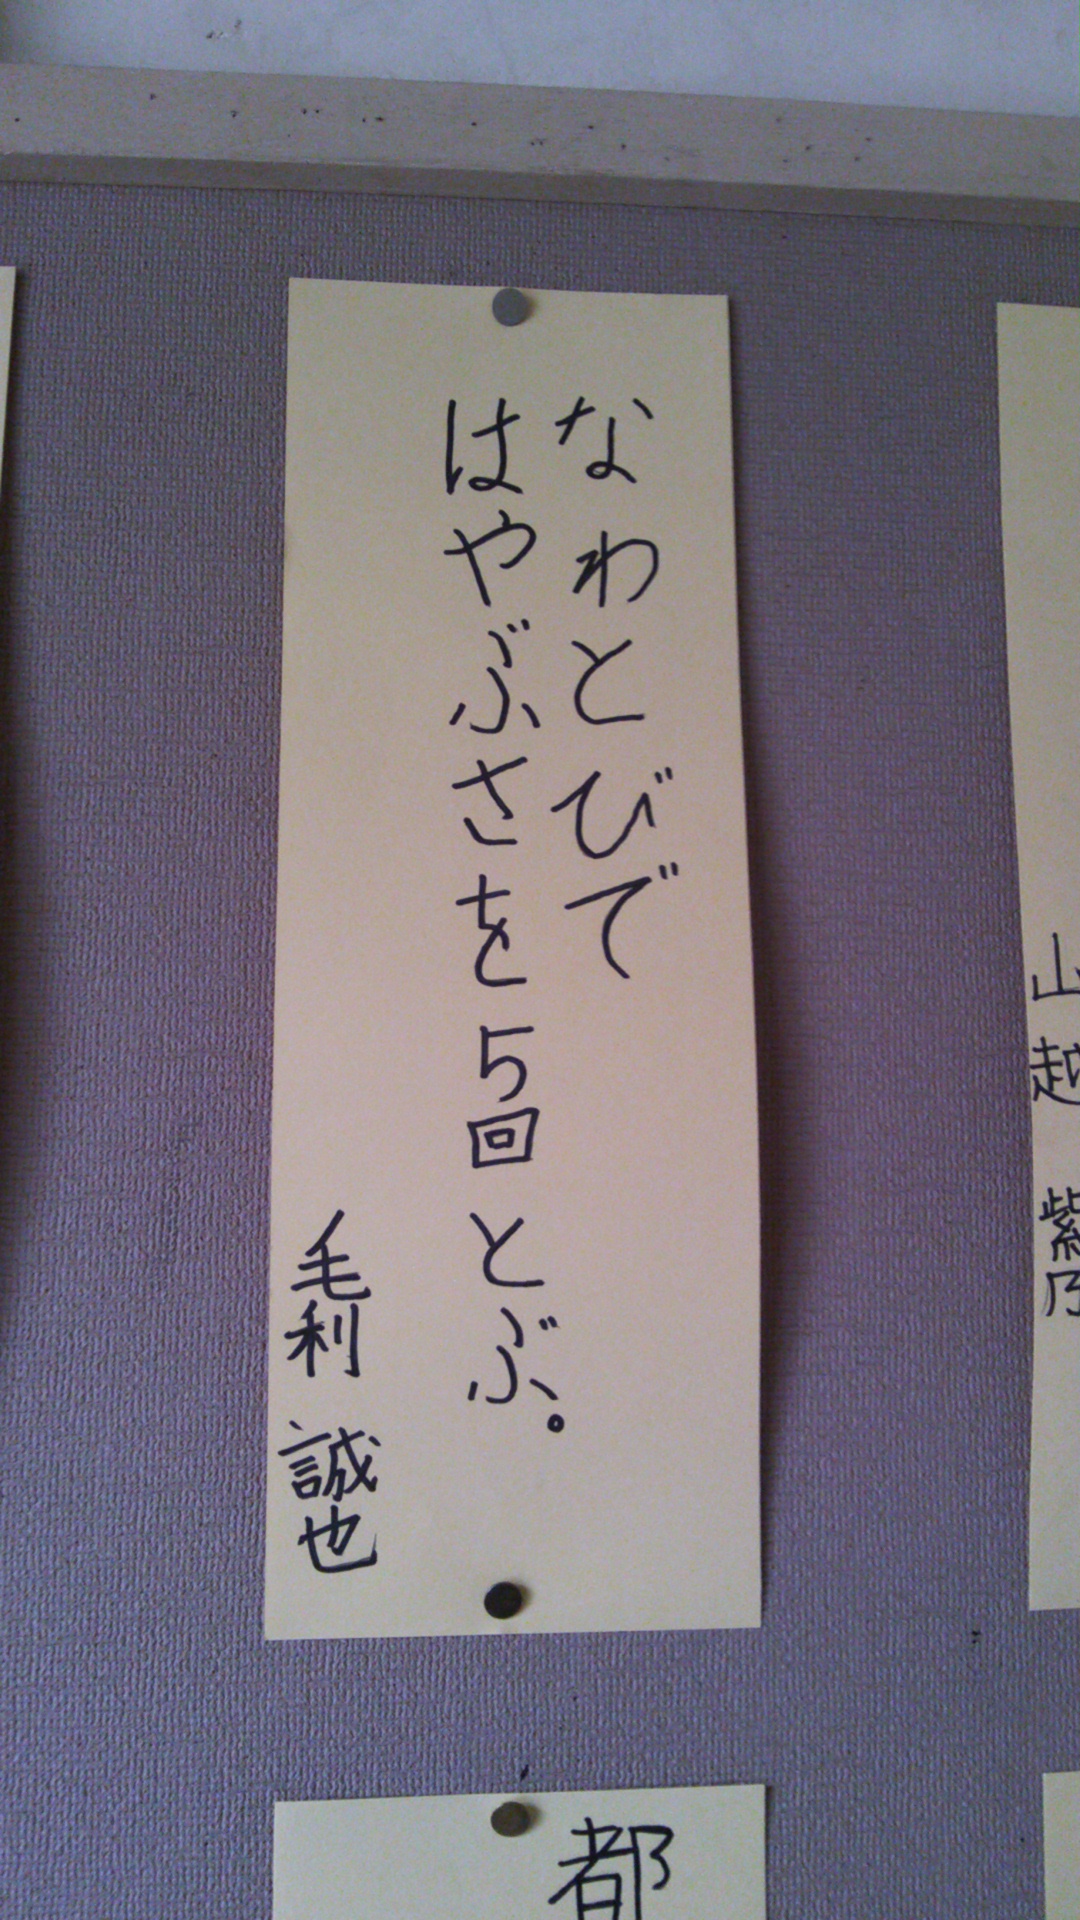 なわとびで
はやぶさを5回とぶ。
毛利 誠也
山越 紫乃
都